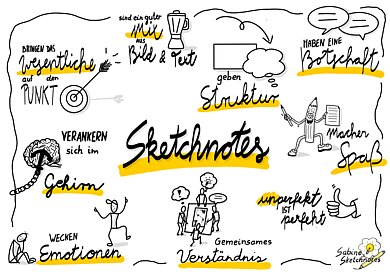 BRINGEN DAS
Wesentliche
auf den
PUNKT
sind ein guter
Mix
aus
Bild & Text
geben
Struktur
HABEN EINE
Botschaft
VERANKERN
sich im
Gehirn
Sketchnotes
machen
Spaß
WECKEN
Emotionen
Gemeinsames
Verständnis
unperfekt
IST
perfekt
Sabine
Sketchnotes